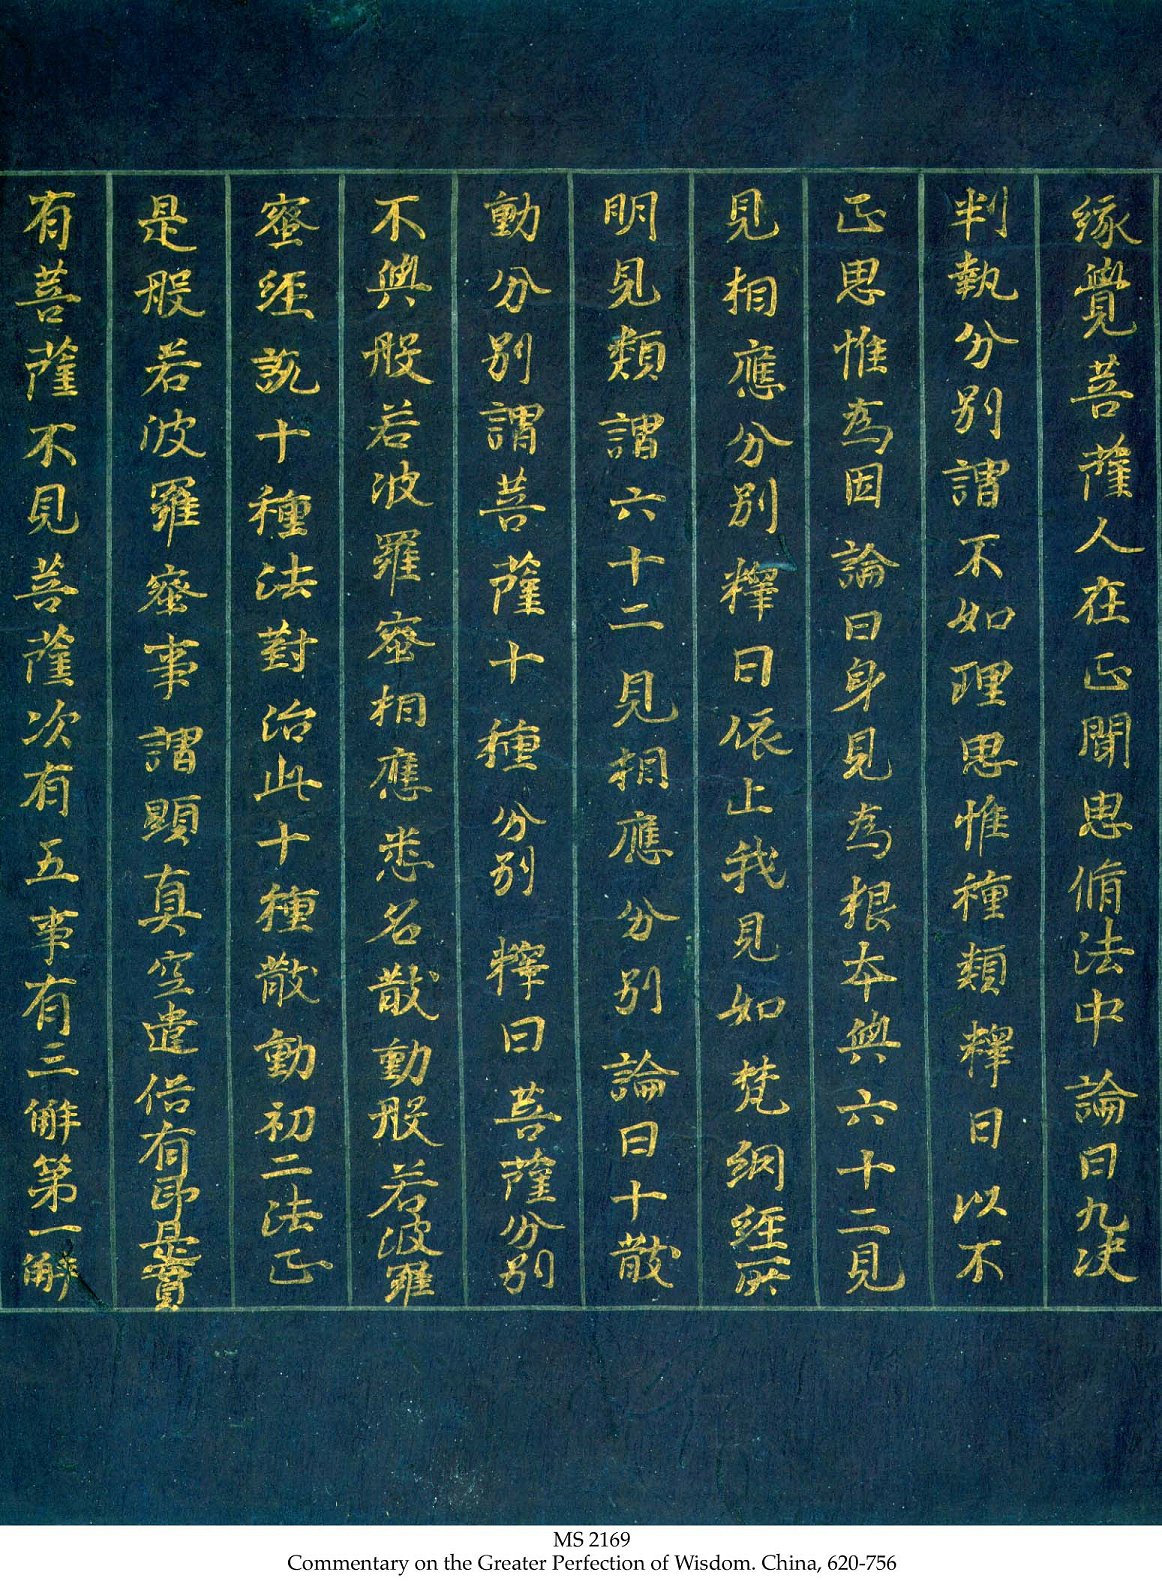 緣覺菩薩人在正聞思脩法中論曰九決
判執分別謂不如理思惟種類釋曰以不
正思惟為因論曰身見為根本與六十二見
見相應分別釋曰依止我見如梵網經所
明見類謂六十二見相應分別論曰十散
動分別謂菩薩十種分別釋曰菩薩分別
不與般若波羅蜜相應悉名散動般若波羅
蜜經說十種法對治此十種散動初二法正
是般若波羅蜜事謂顯真空遣俗有即是實
有菩薩不見菩薩次有五事有三解第一解
MS 2169
Commentary on the Greater Perfection of Wisdom. China, 620-756